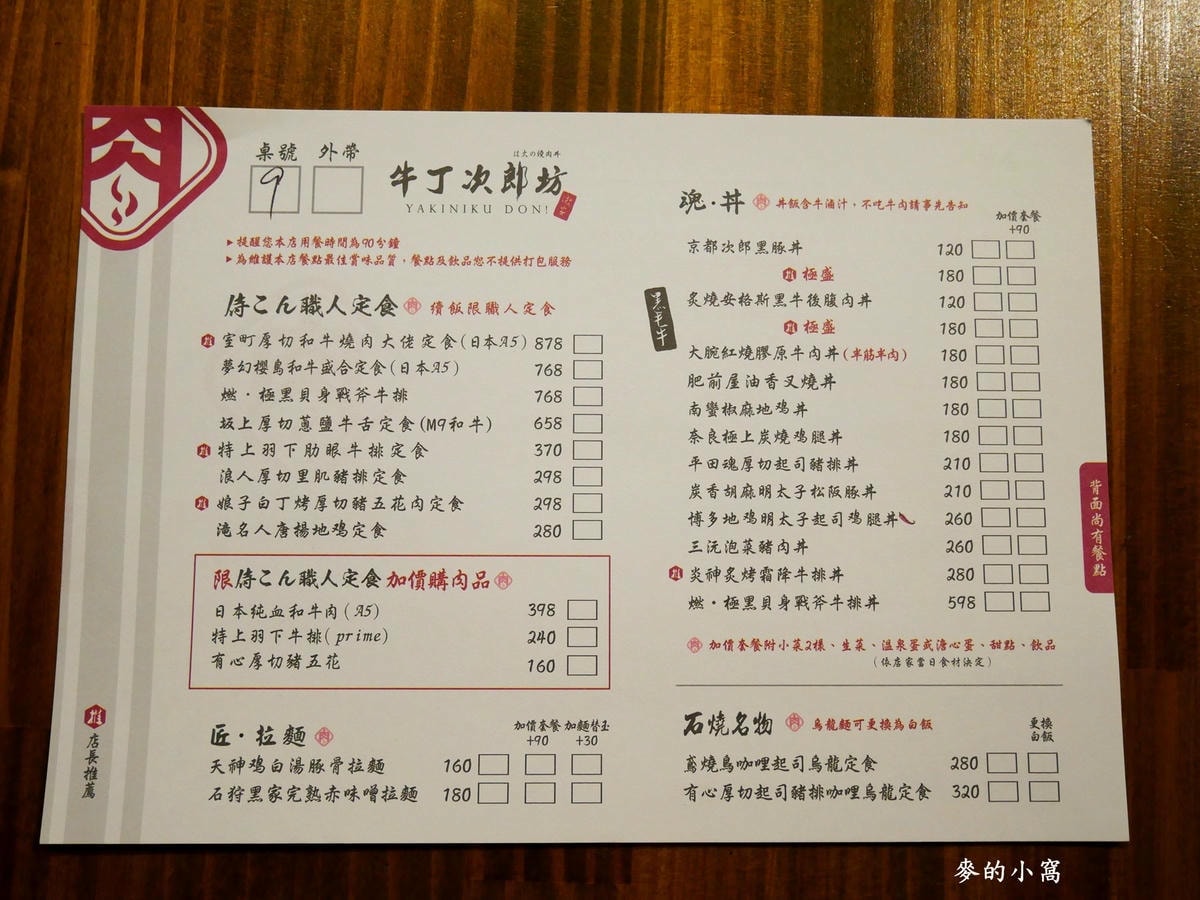 桌號 外帶
9
は大の燒肉丼
牛丁次郎坊
YAKINIKU DON!
▶提醒您本店用餐時間為90分鐘
▶為維護本店餐點最佳賞味品質，餐點及飲品恕不提供打包服務
侍こん職人定食 肉 續飯限職人定食
推 室町厚切和牛燒肉大佬定食(日本A5) 878
夢幻櫻島和牛盛合定食(日本A5) 768
燃・極黑貝身戰斧牛排 768
坂上厚切蔥鹽牛舌定食(M9和牛) 658
推 特上羽下肋眼牛排定食 370
浪人厚切里肌豬排定食 298
推 娘子白丁烤厚切豬五花肉定食 298
滝名人唐揚地鸡定食 280
限侍こん職人定食加價購肉品 肉
日本純血和牛肉(A5) 398
特上羽下牛排(prime) 240
有心厚切豬五花 160
匠・拉麵 肉
加價套餐 +90
加麵替玉 +30
天神鸡白湯豚骨拉麵 160
石狩黑家完熟赤味噌拉麵 180
推 店長推薦
魂・丼 肉 丼飯含牛滷汁，不吃牛肉請事先告知
加價套餐
+90
京都次郎黑豚丼 120
推 極盛 180
黑毛牛
炙燒安格斯黑牛後腹肉丼 120
推 極盛 180
大腕紅燒膠原牛肉丼(半筋半肉) 180
肥前屋油香叉燒丼 180
南蠻椒麻地鸡丼 180
奈良極上炭燒鸡腿丼 180
平田魂厚切起司豬排丼 210
炭香胡麻明太子松阪豚丼 210
博多地鸡明太子起司鸡腿丼 260
三沅泡菜豬肉丼 260
推 炎神炙烤霜降牛排丼 280
燃・極黑貝身戰斧牛排丼 598
肉 加價套餐附小菜2樣、生菜、溫泉蛋或溏心蛋、甜點、飲品
(依店家當日食材決定)
石燒名物 肉 烏龍麵可更換為白飯
更換
白飯
鳶燒鳥咖哩起司烏龍定食 280
有心厚切起司豬排咖哩烏龍定食 320
背面尚有餐點
麥的小窩